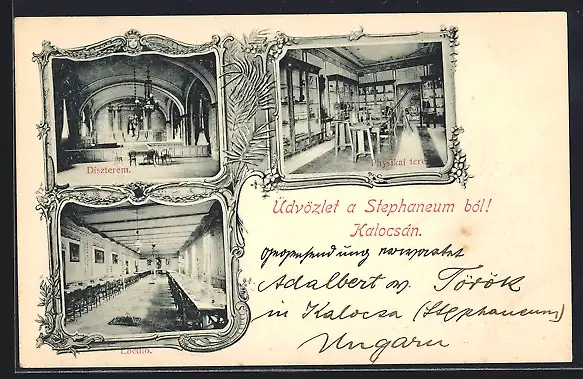 Díszterem.
Physikai terem
Üdvözlet a Stephaneum ból!
Kalocsán.
Gegensendung erwartet
Adalbert v. Török
in Kalocsa (Stephaneum)
Ungarn
Ebédlő.